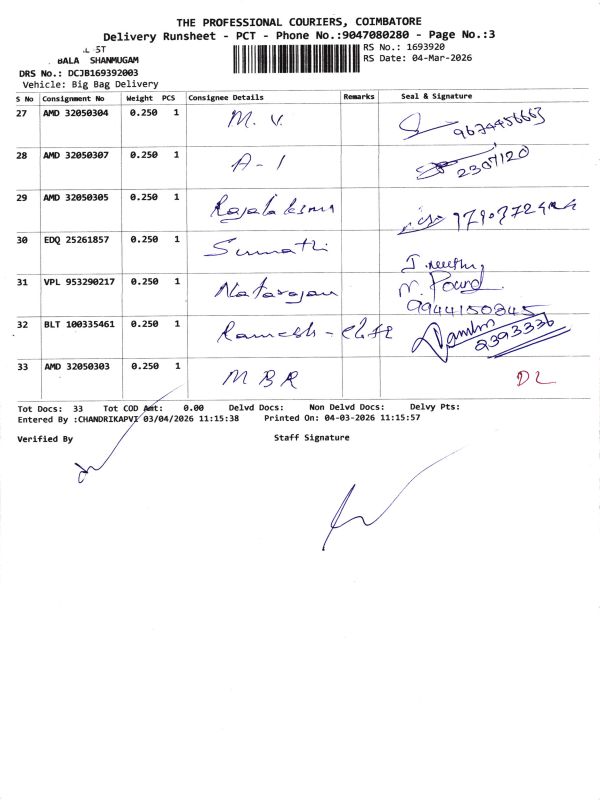 THE PROFESSIONAL COURIERS, COIMBATORE
Delivery Runsheet - PCT - Phone No.:9047080280 - Page No.:3
RS No.: 1693920
BALA SHANMUGAM
RS Date: 04-Mar-2026
DRS No.: DCJB169392003
Vehicle: Big Bag Delivery
S No Consignment No Weight PCS Consignee Details Remarks Seal & Signature
27 AMD 32050304 0.250 1 M. V.
28 AMD 32050307 0.250 1 A - 1 2307120
29 AMD 32050305 0.250 1
30 EDQ 25261857 0.250 1 Sumathi
31 VPL 953290217 0.250 1 Natarajan
9944150845
32 BLT 100335461 0.250 1 Ramesh - 2393336
33 AMD 32050303 0.250 1 MBR DL
Tot Docs: 33 Tot COD Amt: 0.00 Delvd Docs: Non Delvd Docs: Delvy Pts:
Entered By :CHANDRIKAPVI 03/04/2026 11:15:38 Printed On: 04-03-2026 11:15:57
Verified By Staff Signature